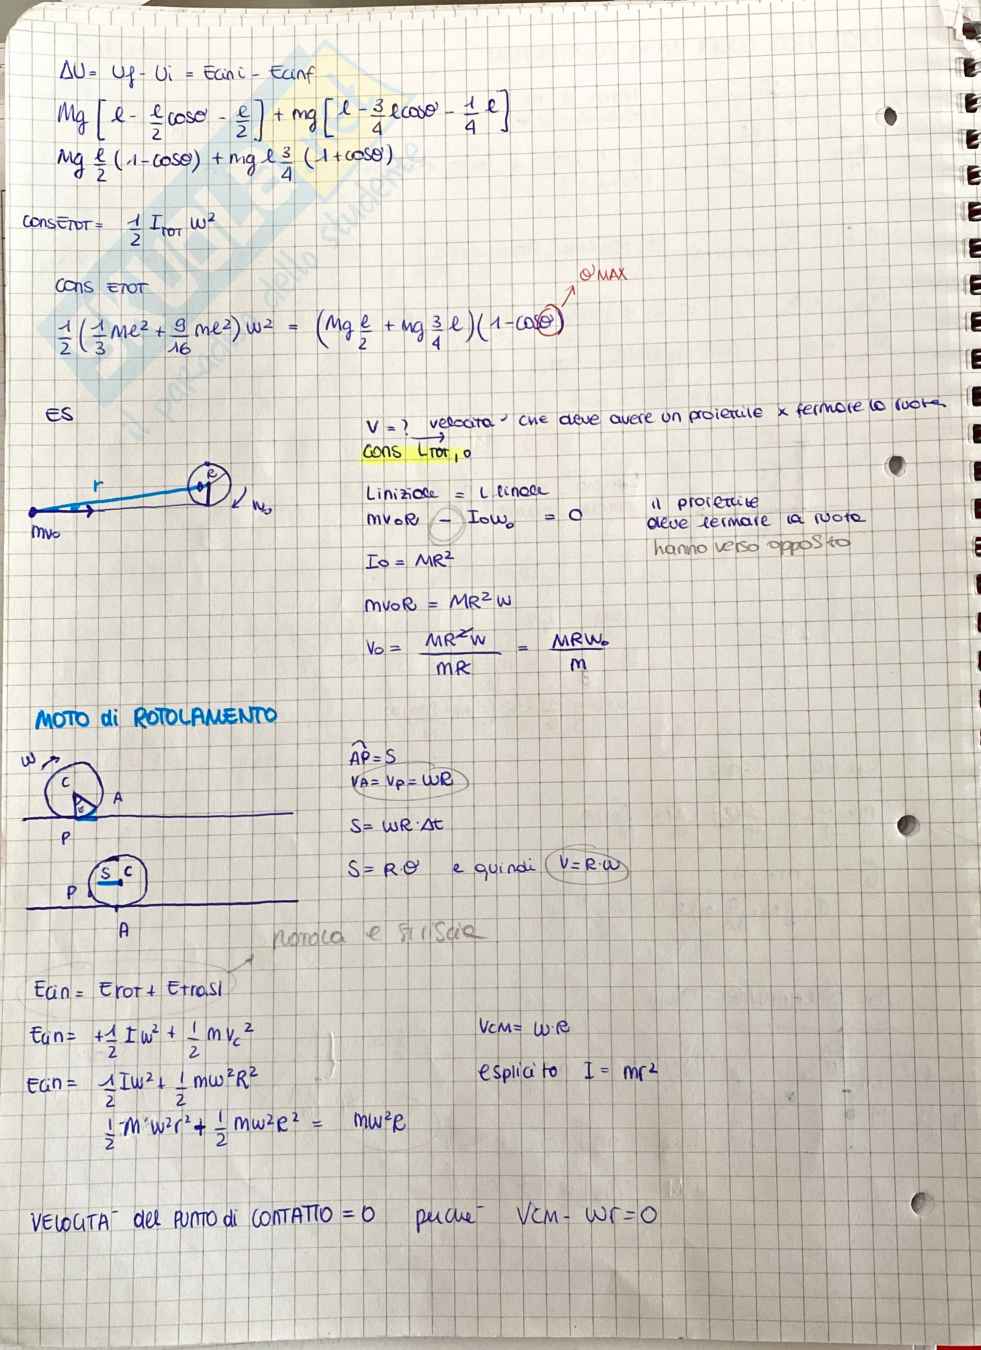 ΔU = Uf - Ui = Ecin i - Ecin f
Mg [ℓ - ℓ/2 cosθ - ℓ/2] + mg [ℓ - 3/4 ℓ cosθ - 1/4 ℓ]
Mg ℓ/2 (1 - cosθ) + mg ℓ 3/4 (1 + cosθ)
cons ETOT = 1/2 ITOT W²
cons ETOT
θ MAX
1/2 (1/3 Mℓ² + 9/16 mℓ²) W² = (Mg ℓ/2 + mg 3/4 ℓ)(1 - cosθ)
ES
V = ? velocità che deve avere un proiettile x fermare la ruota
cons LTOT, 0
r
R
W0
mv0
Liniziale = L lineare
mv0R - I0W0 = 0
il proiettile
deve fermare la ruota
hanno verso opposto
I0 = MR²
mv0R = MR²W
V0 = MR²W / mR = MRW0 / m
MOTO di ROTOLAMENTO
W
C
A
P
AP = S
VA = VP = WR
S = WR·Δt
S = R·θ e quindi V = R·W
S C
P
A
rotola e striscia
Ecin = Erot + Etrasl
Ecin = +1/2 I W² + 1/2 m Vc²
VCM = W·R
Ecin = 1/2 I W² + 1/2 m W² R²
esplicito I = mr²
1/2 m W² r² + 1/2 m W² R² = m W² R
VELOCITÀ del PUNTO di CONTATTO = 0 perché VCM - Wr = 0